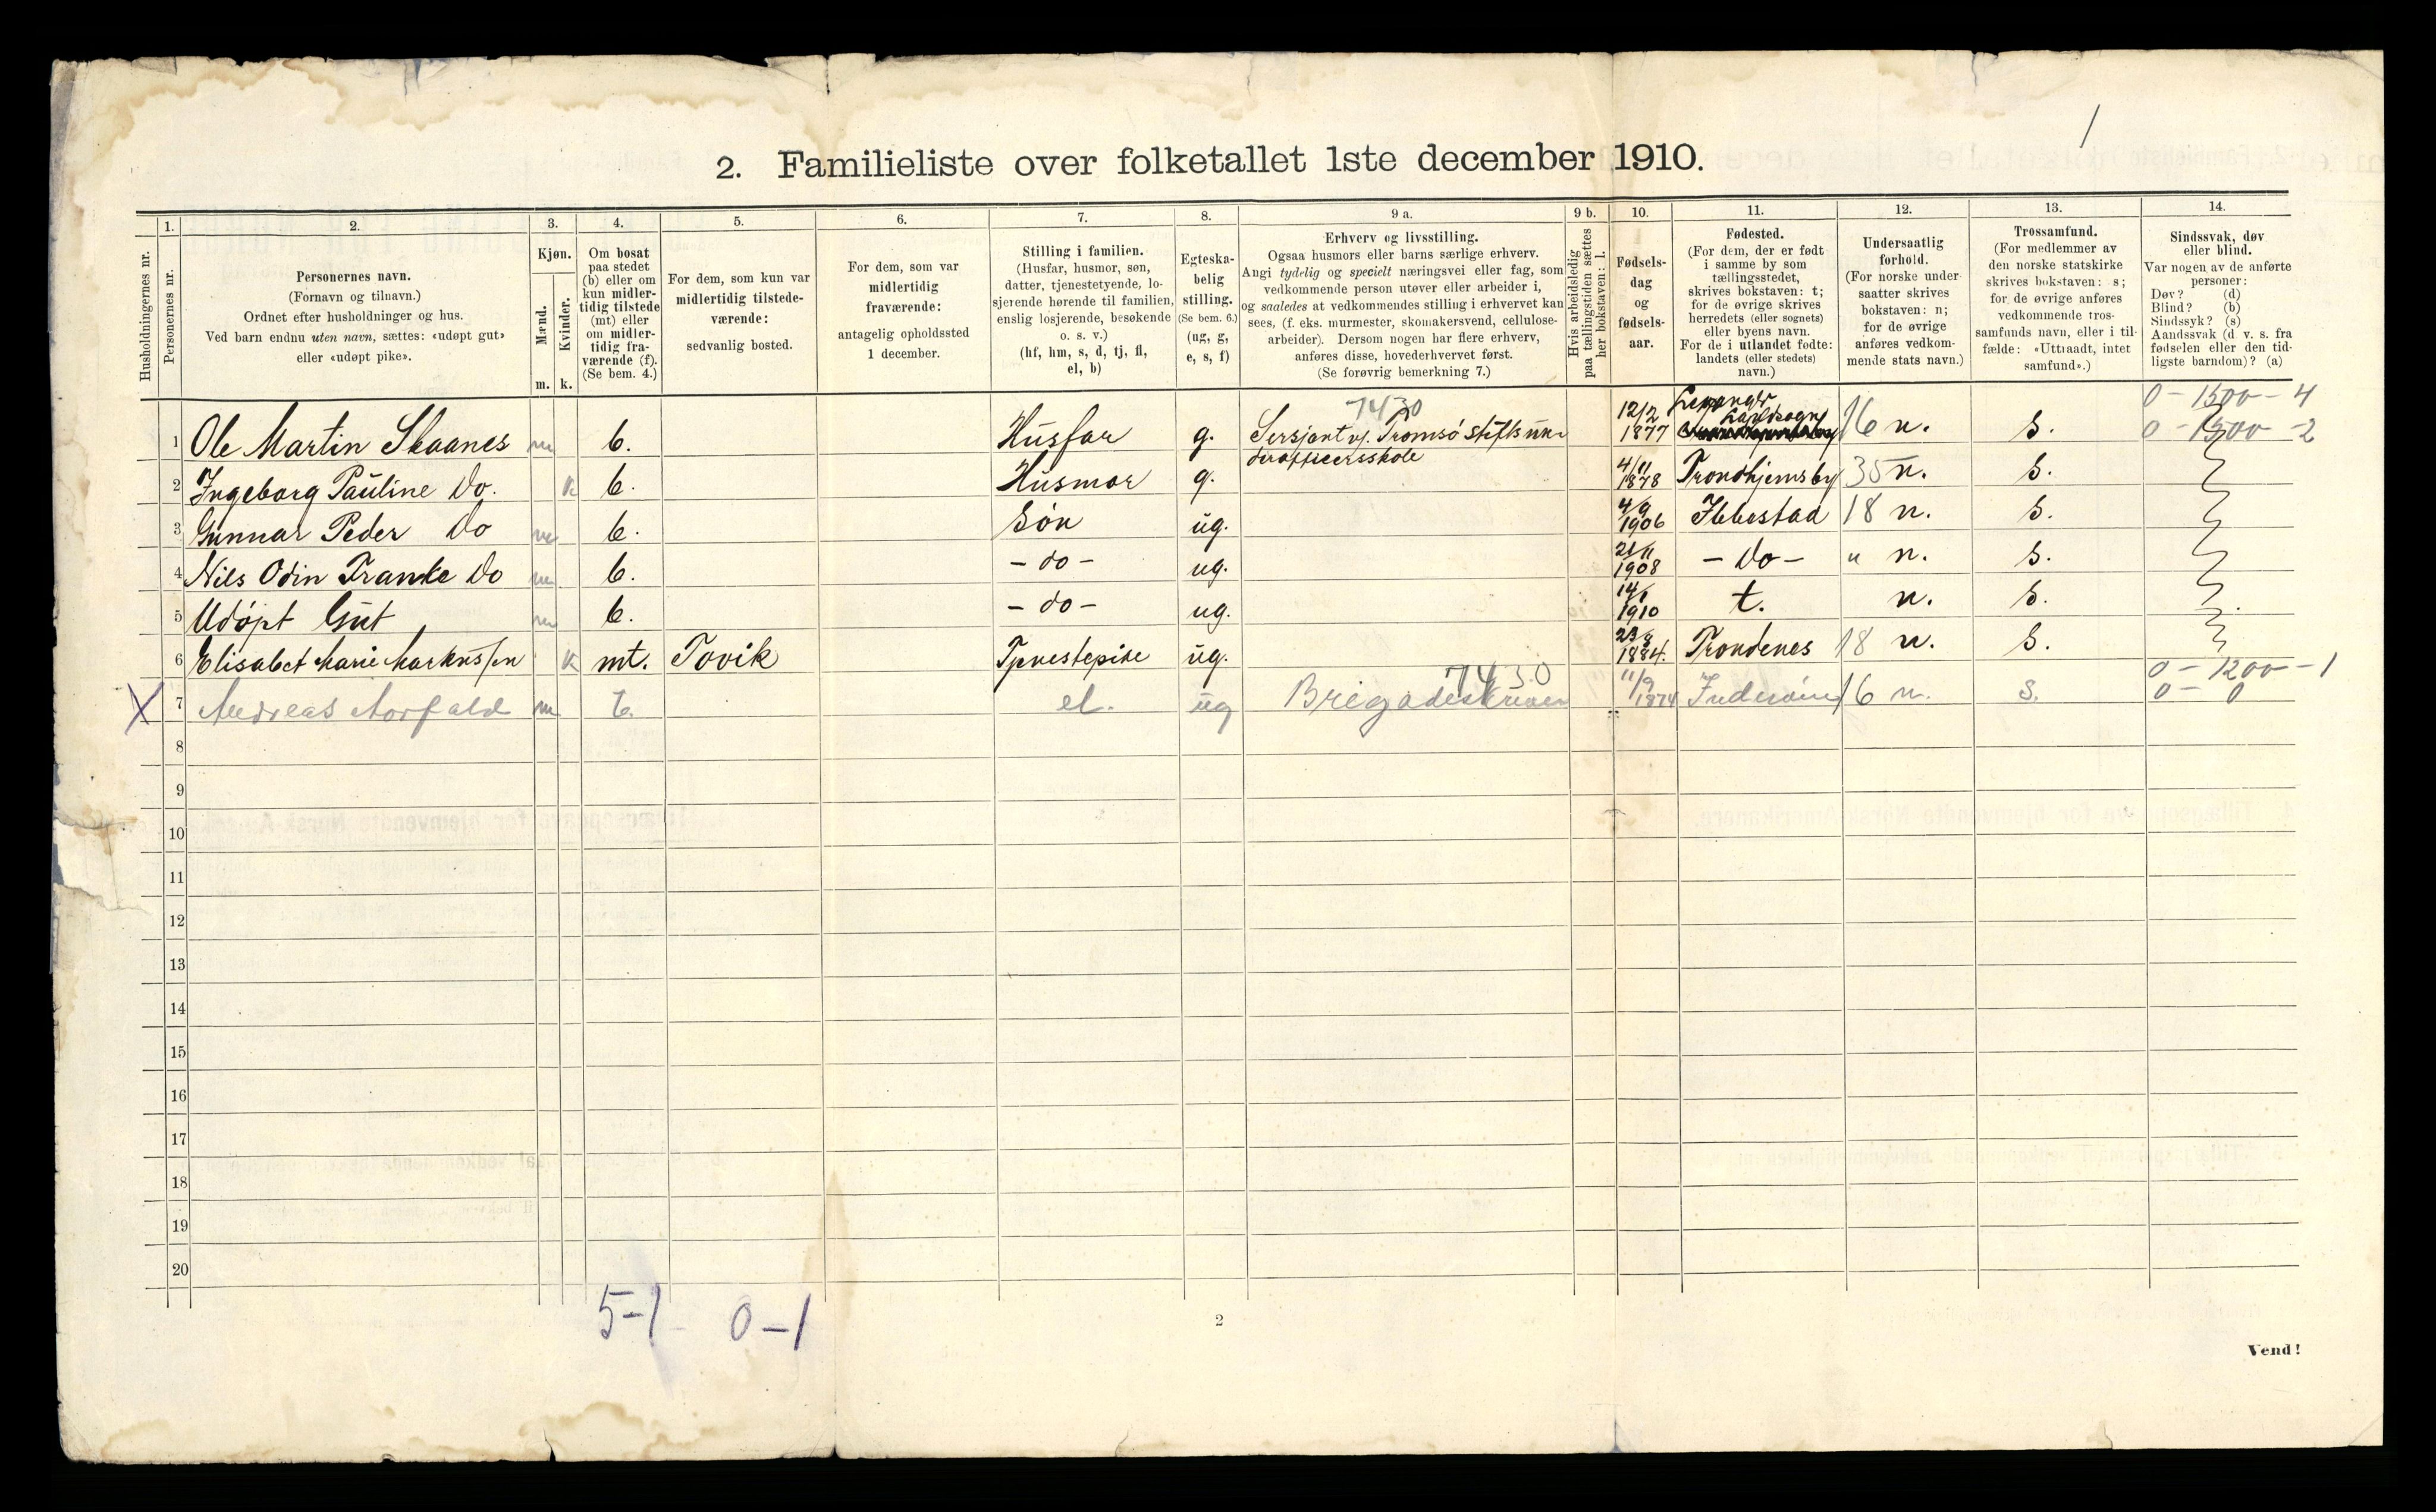 /
2. Familieliste over folketallet 1ste december 1910.
Husholdningernes nr.
1.
Personernes nr.
2.
Personernes navn.
(Fornavn og tilnavn.)
Ordnet efter husholdninger og hus.
Ved barn endnu uten navn, sættes: «udøpt gut»
eller «udøpt pike».
3.
Kjøn.
Mænd.
Kvinder.
m. k.
4.
Om bosat
paa stedet
(b) eller om
kun midler-
tidig tilstede
(mt) eller
om midler-
tidig fra-
værende (f).
(Se bem. 4.)
5.
For dem, som kun var
midlertidig tilstede-
værende:
sedvanlig bosted.
6.
For dem, som var
midlertidig
fraværende:
antagelig opholdssted
1 december.
7.
Stilling i familien.
(Husfar, husmor, søn,
datter, tjenestetyende, lo-
sjerende hørende til familien,
enslig losjerende, besøkende
o. s. v.)
(hf, hm, s, d, tj, fl,
el, b)
8.
Egteska-
belig
stilling.
(Se bem. 6.)
(ug, g,
e, s, f)
9 a.
Erhverv og livsstilling.
Ogsaa husmors eller barns særlige erhverv.
Angi tydelig og specielt næringsvei eller fag, som
vedkommende person utøver eller arbeider i,
og saaledes at vedkommendes stilling i erhvervet kan
sees, (f. eks. murmester, skomakersvend, cellulose-
arbeider). Dersom nogen har flere erhverv,
anføres disse, hovederhvervet først.
(Se forøvrig bemerkning 7.)
9 b.
Hvis arbeidsledig
paa tællingstiden sættes
her bokstaven: l.
10.
Fødsels-
dag
og
fødsels-
aar.
11.
Fødested.
(For dem, der er født
i samme by som
tællingsstedet,
skrives bokstaven: t;
for de øvrige skrives
herredets (eller sognets)
eller byens navn.
For de i utlandet fødte:
landets (eller stedets)
navn.)
12.
Undersaatlig
forhold.
(For norske under-
saatter skrives
bokstaven: n;
for de øvrige
anføres vedkom-
mende stats navn.)
13.
Trossamfund.
(For medlemmer av
den norske statskirke
skrives bokstaven: s;
for de øvrige anføres
vedkommende tros-
samfunds navn, eller i til-
fælde: «Uttraadt, intet
samfund».)
14.
Sindssvak, døv
eller blind.
Var nogen av de anførte
personer:
Døv? (d)
Blind? (b)
Sindssyk? (s)
Aandssvak (d. v. s. fra
fødselen eller den tid-
ligste barndom)? (a)
7430 0 - 1500 - 4
1 Ole Martin Skaanes m b. Husfar g. Sersjant v/ Tromsø stifts un- 12/2 1877 Levanger Landsogn 16 n. s. 0 - 1500 - 2
derofficersskole
2 Ingeborg Pauline Do. k b. Husmor g. 4/11 1878 Trondhjemsby 35 n. s.
3 Gunnar Peder Do m b. Søn ug. 4/9 1906 Ibbestad 18 n. s.
4 Nils Odin Franke Do m b. - do - ug. 21/11 1908 - Do - " n. s.
5 Udøpt Gut m b. - do - ug. 14/1 1910 t. n. s.
6 Elisabet Marie Markussen k mt. Tovik Tjenestepike ug. 23/8 1884. Trondenes 18 n. s.
7430 0 - 1200 - 1
X 7 Andreas Aorfald m b. el. ug Brigadeskriver 11/9 1874 Inderøen 16 n. s. 0 - 0
8
9
10
11
12
13
14
15
16
17
18
19
20
5-1 0-1
2
Vend!